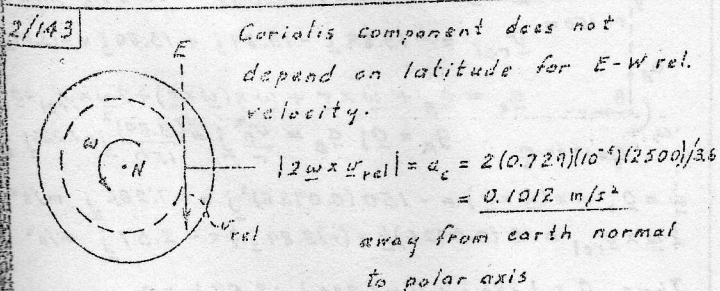 2/143
Coriolis component does not
depend on latitude for E-W rel.
velocity.
E
ω
N
|2ω × v_rel| = a_c = 2(0.729)(10⁻⁴)(2500)/3.6
= 0.1012 m/s²
v_rel
away from earth normal
to polar axis